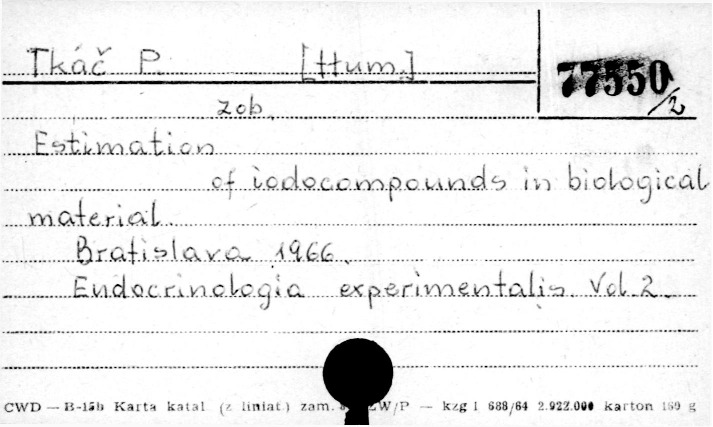 Tkáč P. [Hum.]
77550/2
zob.
Estimation
of iodocompounds in biological
material.
Bratislava 1966.
Endocrinologia experimentalis. Vol. 2.
CWD — B-15b Karta katal. (z liniat.) zam. ZW/P — kzg I 688/64 2.922.000 karton 169 g